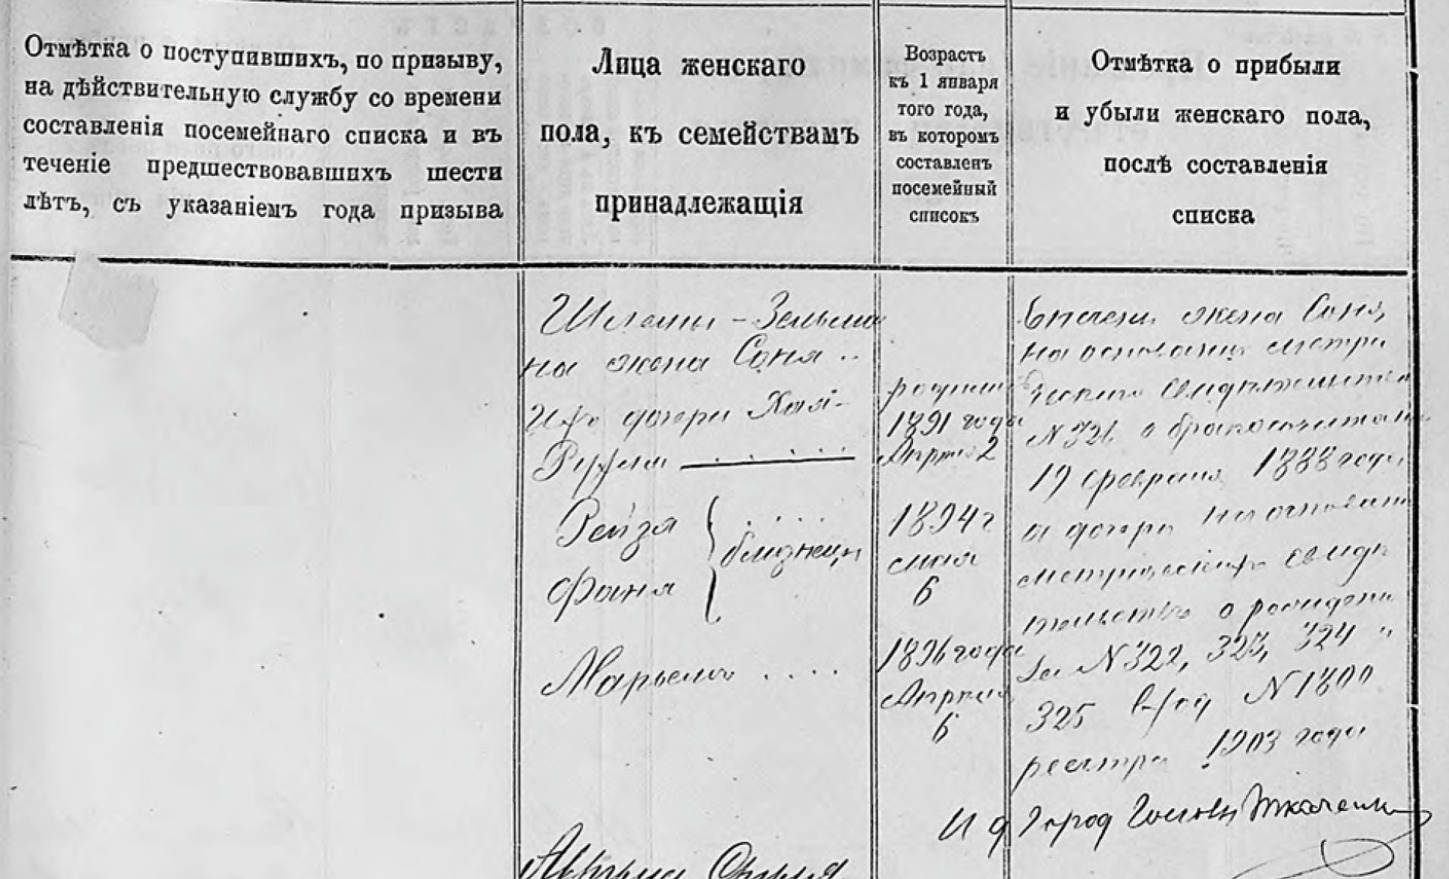 Отмѣтка о поступившихъ, по призыву,
на дѣйствительную службу со времени
составленія посемейнаго списка и въ
теченіе предшествовавшихъ шести
лѣтъ, съ указаніемъ года призыва
Лица женскаго
пола, къ семействамъ
принадлежащія
Возрастъ
къ 1 января
того года,
въ которомъ
составленъ
посемейный
списокъ
Отмѣтка о прибыли
и убыли женскаго пола,
послѣ составленія
списка
Шлемы-Зельма
на жена Соня
Ихъ дочери Хая-
Рейза
Фаня
близнецы
родилась
1891 года
Апрѣля 2
1894 г
6
1896 года
Апрѣля
6
жена Соня,
на основаніи метри
ческаго свидѣтельства
N 326 о бракосочетаніи
19 февраля 1888 года
а дочери на основан
метрическихъ свидѣ
тельствъ о рожденіи
за N 322, 323, 324 и
325 N 1800
реестра 1903 года
И д Город